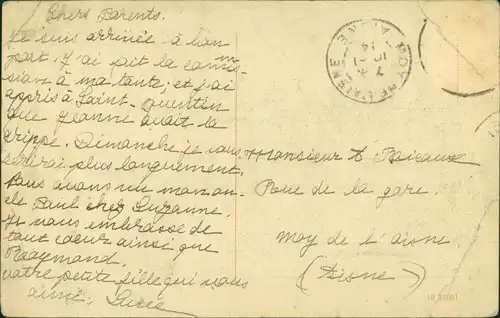 Chers Parents.
Je suis arrivée à bon
port. J'ai fait la com̄is-
sion à ma tante; et j'ai
appris à Saint-Quentin
que Jeanne avait la
grippe. Dimanche je vous
écrirai plus longuement.
Nous avons vu mon on-
cle Paul chez Suzanne.
Je vous embrasse de
tout coeur ainsi que
Raymond.
votre petite fille qui vous
aime. Lucie
MOY DE L'AISNE
AISNE
14
Monsieur
Rue de la gare.
Moy de l'aisne
(Aisne)